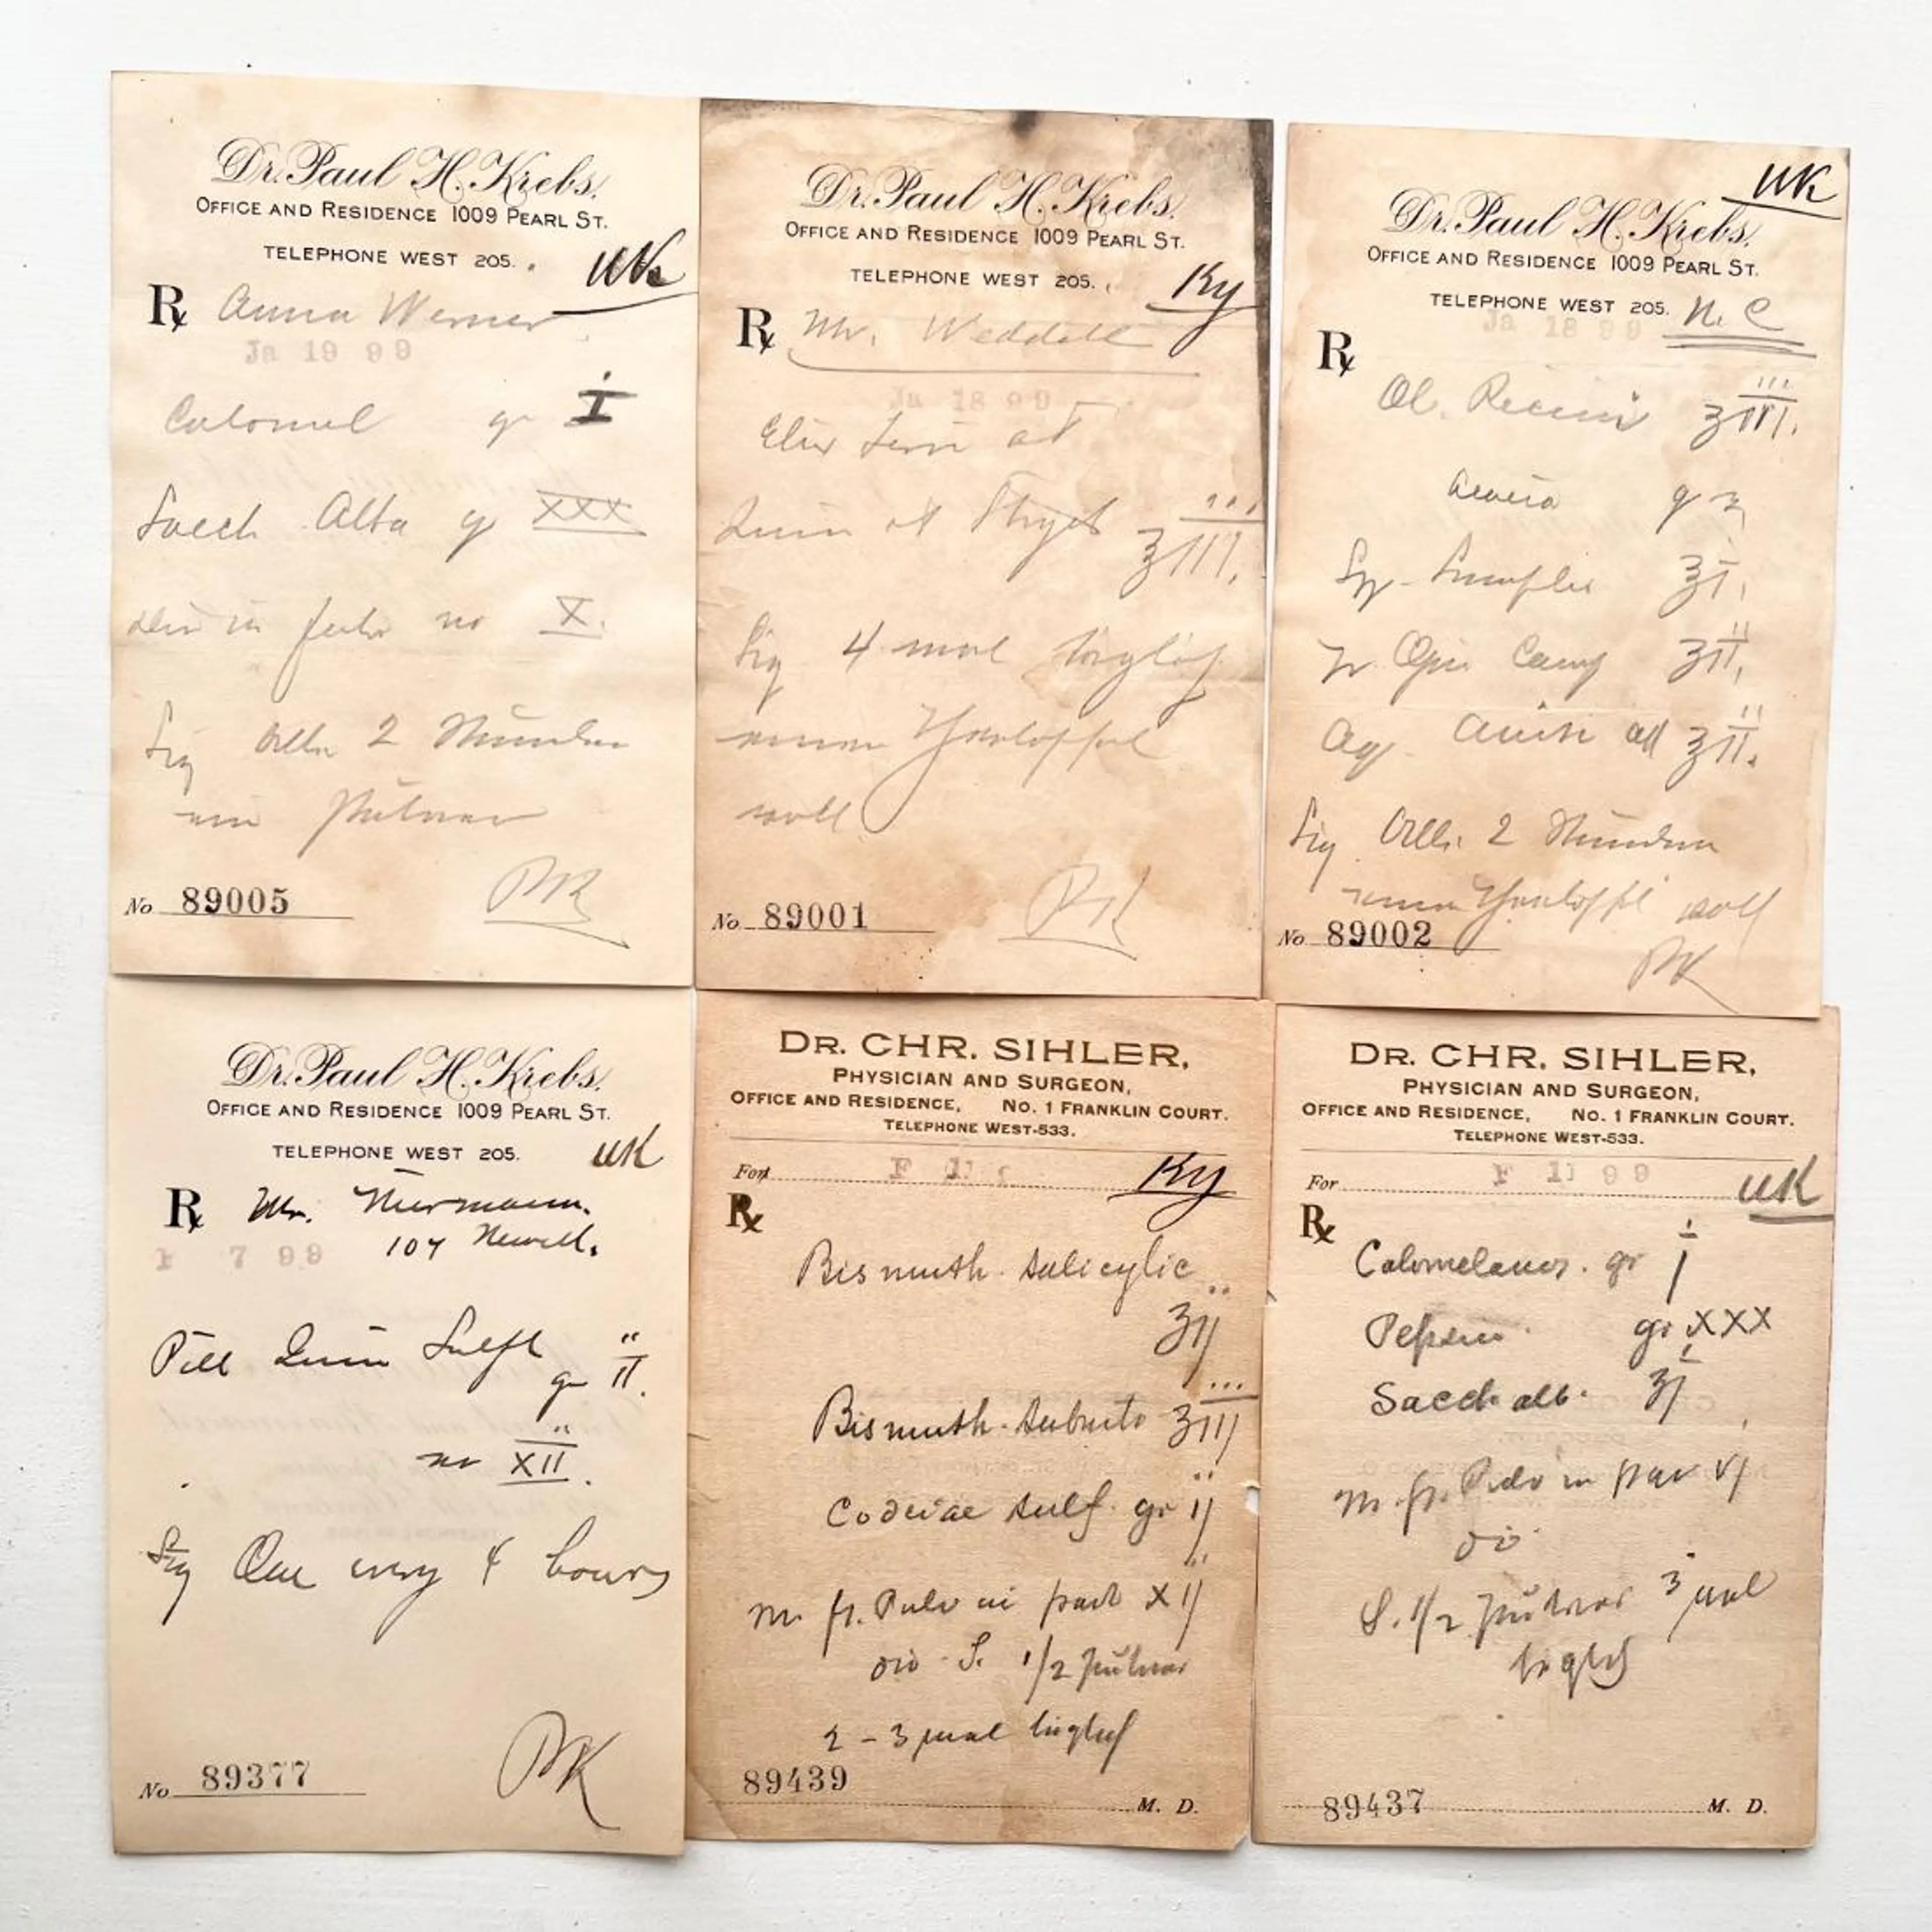 Dr. Paul H. Krebs.
OFFICE AND RESIDENCE 1009 PEARL ST.
TELEPHONE WEST 205.
UK
Rx Anna Werner
Ja 19 99
Calomel gr i
Sacch Alba gr XXX
no X.
Sig Alle 2 Stunden
ein Pulver
PK
No 89005
Dr. Paul H. Krebs.
OFFICE AND RESIDENCE 1009 PEARL ST.
TELEPHONE WEST 205.
Ky
Rx Mr. Weddell
Ja 18 99
Elix Ferri et
Quin et Strych ʒIII.
Sig 4 mal täglich
einen Theelöffel
voll
PK
No 89001
UK
Dr. Paul H. Krebs.
OFFICE AND RESIDENCE 1009 PEARL ST.
TELEPHONE WEST 205. N. C
Ja 18 99
Rx
Ol. Ricini ʒIII.
Syr Simplex ʒI.
Tr Opii Camp ʒII.
Aq Anisi ad ʒII.
Sig Alle 2 Stunden
einen Theelöffel voll
No 89002
PK
Dr. Paul H. Krebs.
OFFICE AND RESIDENCE 1009 PEARL ST.
TELEPHONE WEST 205.
UK
Rx Mr. Niermann.
107 Newell.
F 7 99
Pill Quin Sulph
gr II.
no XII.
Sig One every 4 hours
PK
No 89377
DR. CHR. SIHLER,
PHYSICIAN AND SURGEON,
OFFICE AND RESIDENCE, NO. 1 FRANKLIN COURT.
TELEPHONE WEST-533.
For F 11 Ky
Rx
Bismuth. salicylic
ʒij
Bismuth. subnit ʒiij
Codeiae sulf. gr ij
M. ft. Pulv in part Xij
div S. 1/2 Pulver
2 - 3 mal täglich
89439
M. D.
DR. CHR. SIHLER,
PHYSICIAN AND SURGEON,
OFFICE AND RESIDENCE, NO. 1 FRANKLIN COURT.
TELEPHONE WEST-533.
For F 11 99 UK
Rx
Calomelanos. gr i
Pepsin gr XXX
Sacch alb. ʒi
M. ft. Pulv in par vj
div
S. 1/2 Pulver 3 mal
täglich
89437
M. D.